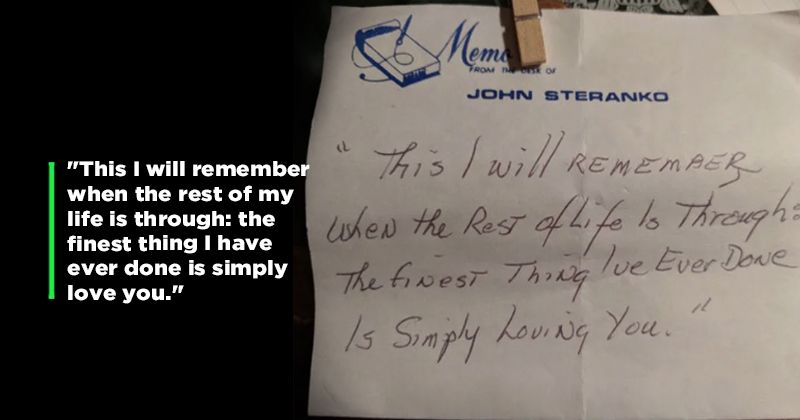 "This I will remember
when the rest of my
life is through: the
finest thing I have
ever done is simply
love you."
Memo
FROM THE DESK OF
JOHN STERANKO
" This I will REMEMBER
When the Rest of Life Is Through:
The finest Thing I've Ever Done
Is Simply Loving You."